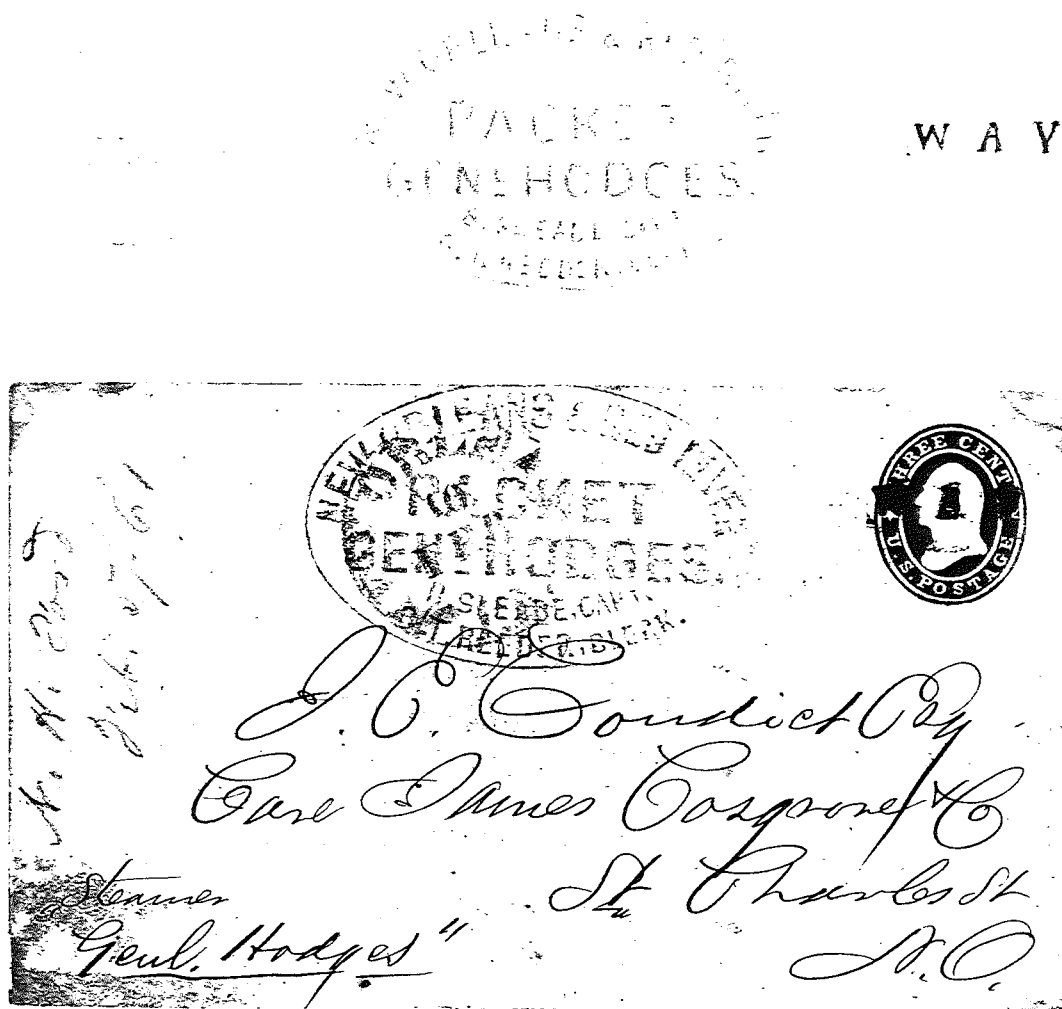 PACKET
GENL HODGES.
WAY
NEW ORLEANS & RED RIVER
PACKET
GENL HODGES.
SLEADE, CAPT.
REEDER, CLERK.
THREE CENTS
U.S. POSTAGE
J. C. Condict Esq
Care James Cosgrove & Co
St Charles St
N.O.
Steamer
"Genl. Hodges"